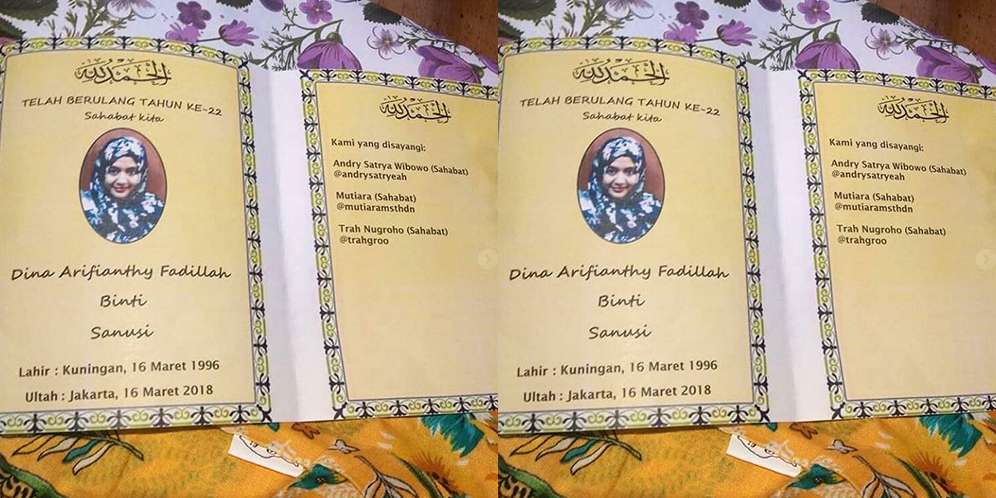 الحمد لله
TELAH BERULANG TAHUN KE-22
Sahabat kita
Dina Arifianthy Fadillah
Binti
Sanusi
Lahir : Kuningan, 16 Maret 1996
Ultah : Jakarta, 16 Maret 2018
الحمد لله
Kami yang disayangi:
Andry Satrya Wibowo (Sahabat)
@andrysatryeah
Mutiara (Sahabat)
@mutiaramsthdn
Trah Nugroho (Sahabat)
@trahgroo
الحمد لله
TELAH BERULANG TAHUN KE-22
Sahabat kita
Dina Arifianthy Fadillah
Binti
Sanusi
Lahir : Kuningan, 16 Maret 1996
Ultah : Jakarta, 16 Maret 2018
الحمد لله
Kami yang disayangi:
Andry Satrya Wibowo (Sahabat)
@andrysatryeah
Mutiara (Sahabat)
@mutiaramsthdn
Trah Nugroho (Sahabat)
@trahgroo